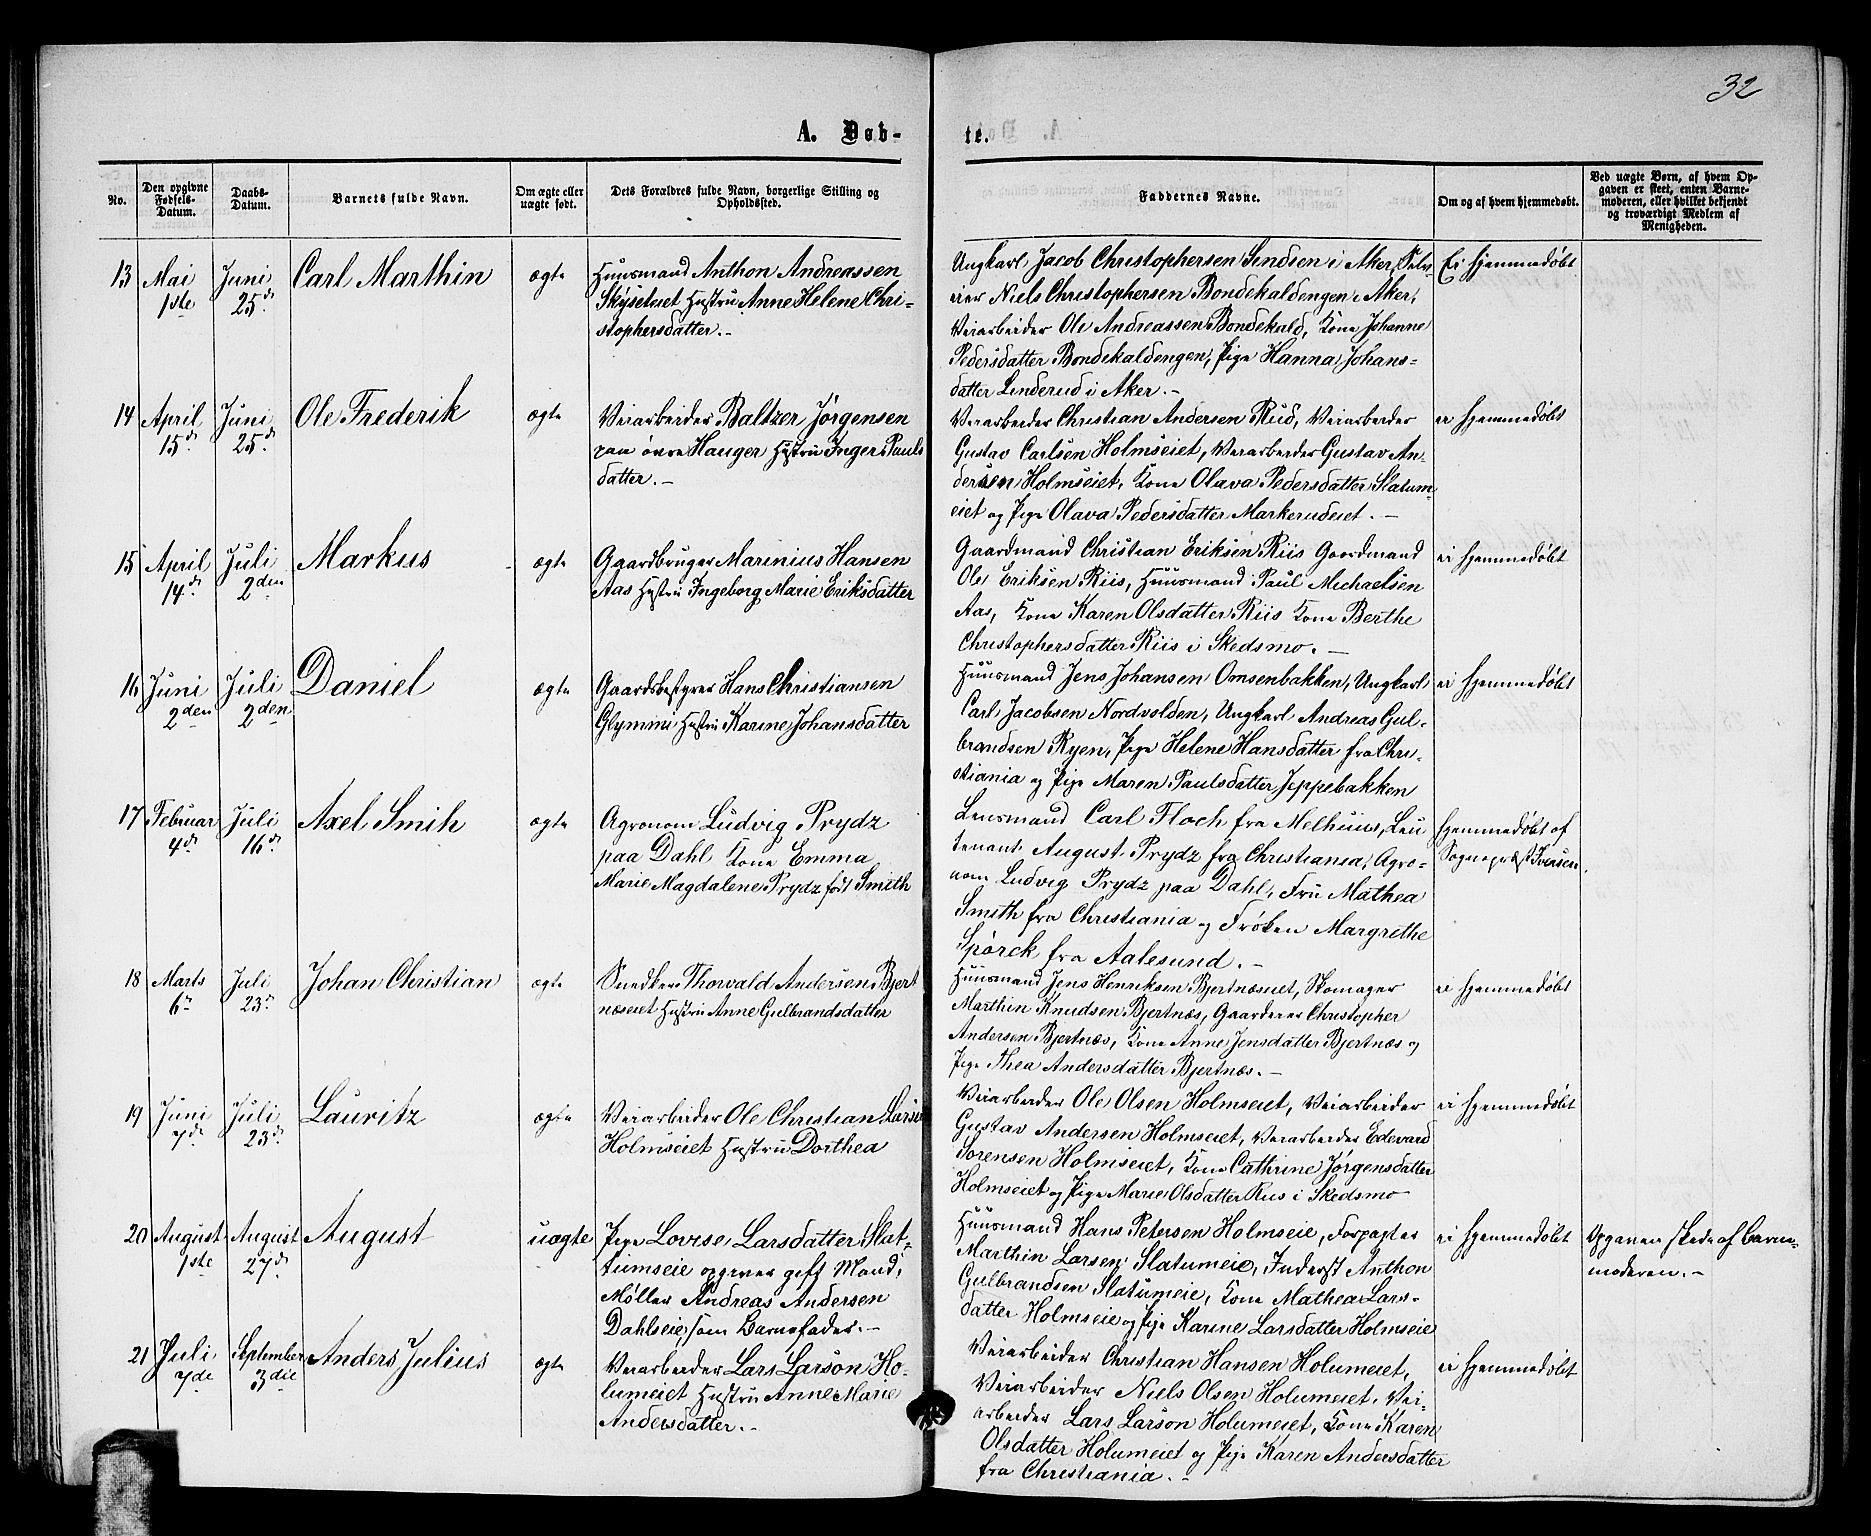 32
A. Døb-
te.
No.
Den opgivne Fødsels-Datum.
Daabs-Datum.
Barnets fulde Navn.
Om ægte eller uægte født.
Dets Forældres fulde Navn, borgerlige Stilling og Opholdssted.
Faddernes Navne.
Om og af hvem hjemmedøbt.
Ved uægte Børn, af hvem Opgaven er skeet, enten Barnemoderen, eller hvilket bekjendt og troværdigt Medlem af Menigheden.
13 Mai 1ste Juni 25d Carl Marthin ægte
Huusmand Anthon Andreassen
Skyseiuet Hustru Anne Helene Chri-
stophersdatter.-
Ungkarl Jacob Christophersen Sindsen i Aker,
Niels Christophersen Bondekaldengen i Aker,
Veiarbeider Ole Andreassen Bondekald, Kone Johanne
Pedersdatter Bondekaldengen, Pige Hanna Johans-
datter Linderud i Aker.-
Ei hjemmedøbt
14 April 15d Juni 25d Ole Frederik ægte
Veiarbeider Baltzer Jørgensen
paa øvre Hauger Hustru Inger Pauls
datter.-
Veiarbeider Christian Andersen Rud, Veiarbeider
Gustav Carlsen Holmseiet, Veiarbeider Gustav An-
dersen Holmseiet, Kone Olava Pedersdatter Slatum-
eiet og Pige Olava Pedersdatter Markerudeiet.-
ei hjemmedøbt
15 April 14d Juli 2den Markus ægte
Gaardbruger Marinius Hansen
Aas Hustru Ingeborg Marie Eriksdatter
Gaardmand Christian Eriksen Riis Gaardmand
Ole Eriksen Riis, Huusmand Paul Michaelsen
Aas, Kone Karen Olsdatter Riis Kone Berthe
Christophersdatter Riis i Skedsmo.-
ei hjemmedøbt
16 Juni 2den Juli 2den Daniel ægte
Gaardsbestyrer Hans Christiansen
Glymini Hustru Karine Johansdatter
Huusmand Jens Johansen Omsenbakken, Ungkarl
Carl Jacobsen Nordvolden, Ungkarl Andreas Gul-
brandsen Ryen, Pige Helene Hansdatter fra Chri-
stiania og Pige Maren Paulsdatter Jeppebakken
ei hjemmedøbt
17 Februar 4d Juli 16d Axel Smih ægte
Agronom Ludvig Prydz
paa Dahl Kone Emma
Marie Magdalene Prydz født Smith
Lensmand Carl Floch fra Melhuus, Leu
tenant August Prydz fra Christiania, Agro-
nom Ludvig Prydz paa Dahl, Fru Mathea
Smith fra Christiania og Frøken Margrethe
Spørck fra Aalesund.-
Hjemmedøbt af
Sognepræst Iversen.
18 Marts 6te Juli 23d Johan Christian ægte
Snedker Thorvald Andersen Bjert
næseiet Hustru Anne Gulbrandsdatter
Huusmand Jens Henriksen Bjertnæseiet, Skomager
Marthin Knudsen Bjertnæs, Gaardeier Christopher
Andersen Bjertnæs, Kone Anne Jensdatter Bjertnæs og
Pige Thea Andersdatter Bjertnæs.-
ei hjemmedøbt
19 Juni 7de Juli 23d Lauritz ægte
Veiarbeider Ole Christian Larsen
Holmseiet Hustru Dorthea
Veiarbeider Ole Olsen Holmseiet, Veiarbeider
Gustav Andersen Holmseiet, Veiarbeider Edevard
Sørensen Holmseiet, Kone Cathrine Jørgensdatter
Holmseiet og Pige Marie Olsdatter Riis i Skedsmo
ei hjemmedøbt
20 August 1ste August 27d August uægte
Pige Lovise Larsdatter Slat-
tumseie opgiver gift Mand,
Møller Andreas Andersen
Dahlseie, som Barnefader.-
Huusmand Hans Petersen Holmseie, Forpagter
Marthin Larsen Slatumeie, Inderst Anthon
Gulbrandsen Slatumeie, Kone Mathea Lars-
datter Holmseie og Pige Karine Larsdatter Holmseie
ei hjemmedøbt
Opgaven skede af Barne-
moderen.-
21 Juli 7de September 3die Anders Julius ægte
Veiarbeider Lars Larson Ho-
lumeiet Hustru Anne Marie
Andersdatter.-
Veiarbeider Christian Hansen Holumeiet,
Veiarbeider Niels Olsen Holumeiet, Vei-
arbeider Lars Larson Holumeiet, Kone Karen
Olsdatter Holumeiet og Pige Karen Andersdatter
fra Christiania.-
ei hjemmedøbt